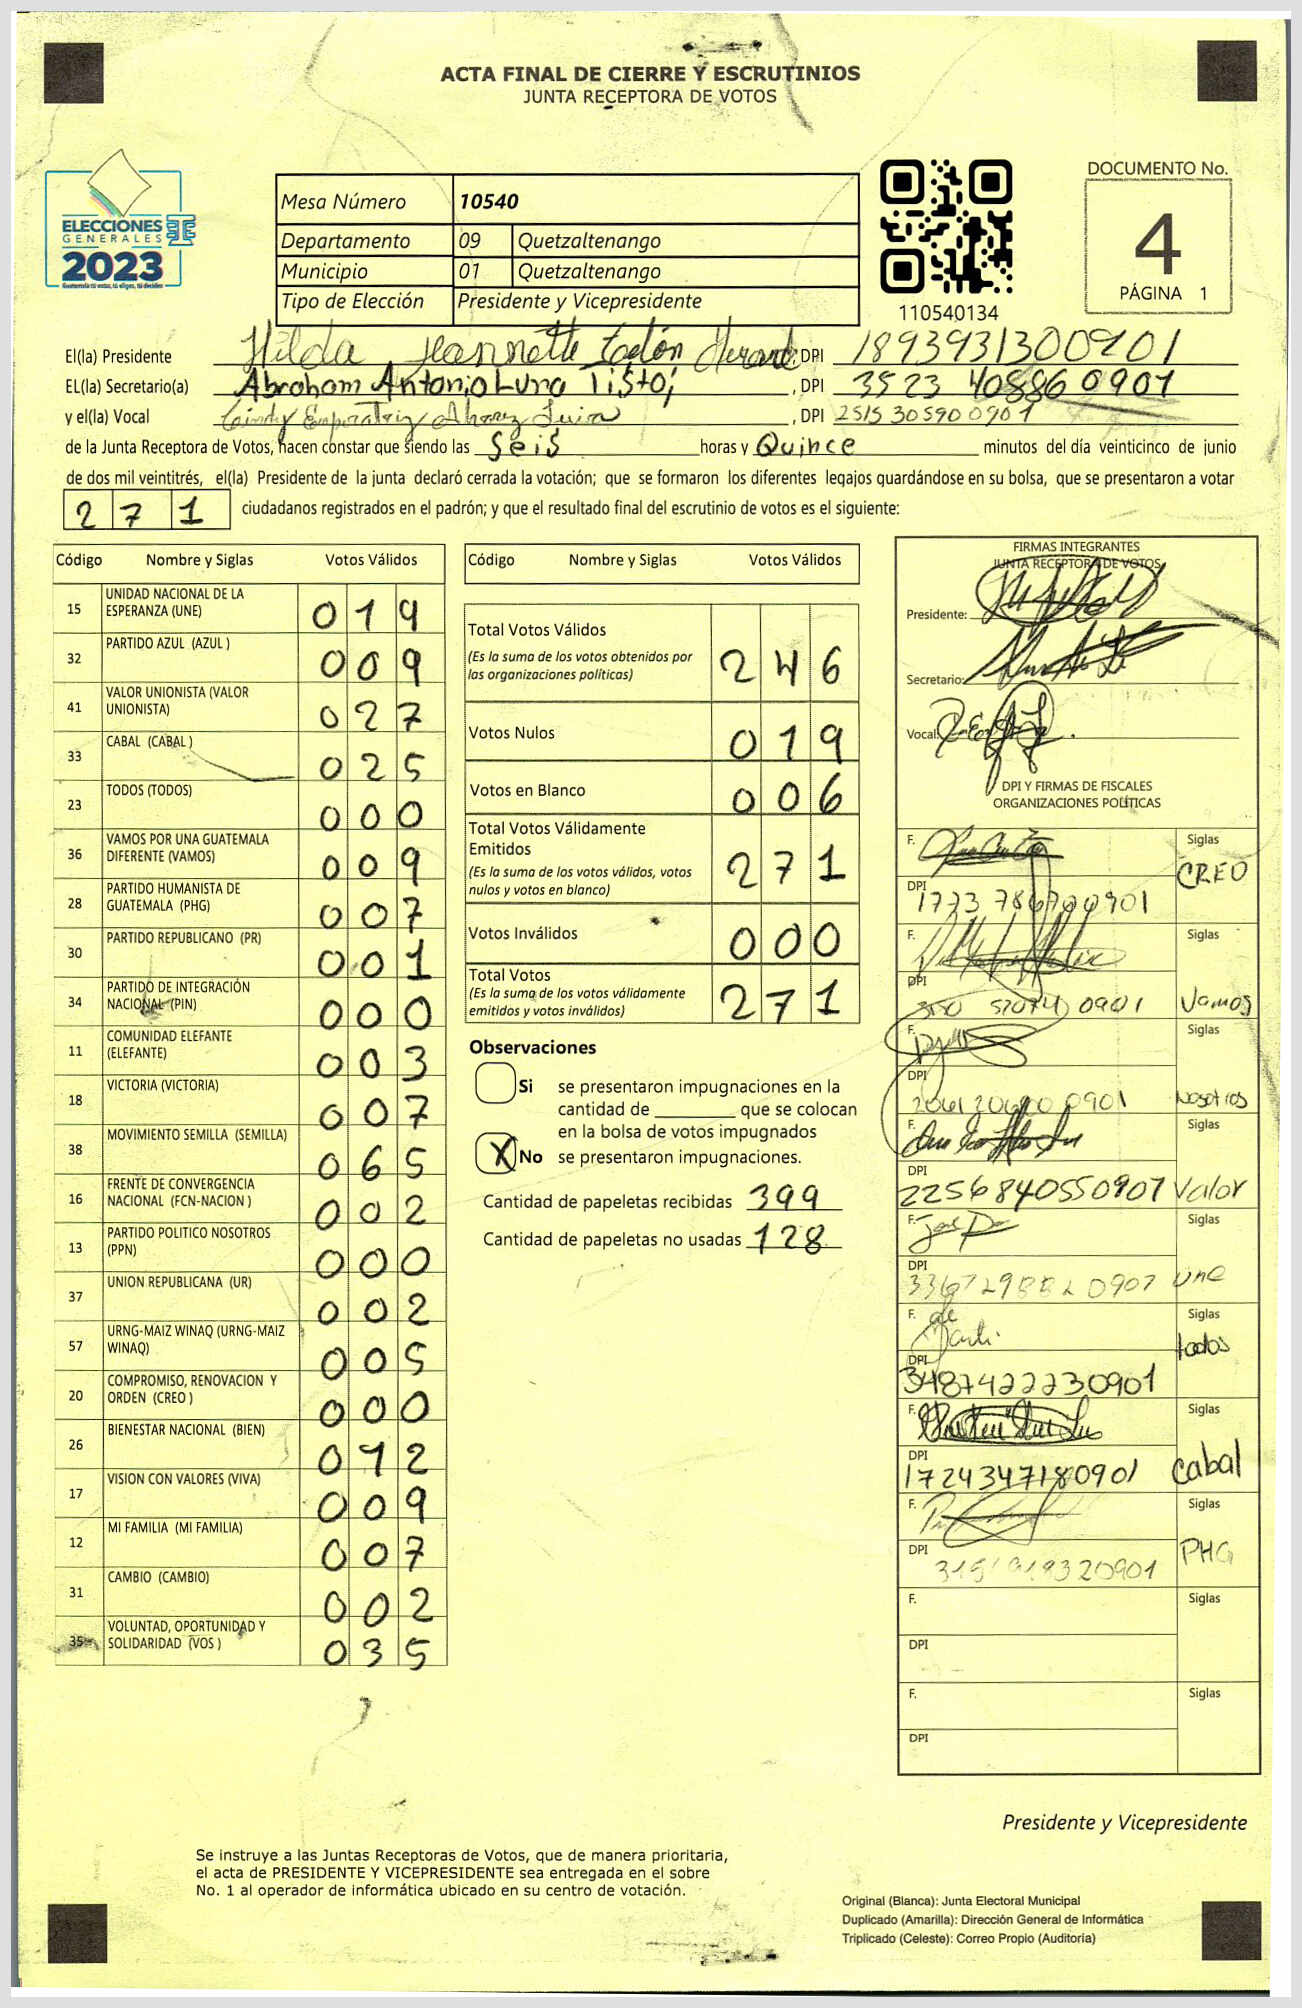 ACTA FINAL DE CIERRE Y ESCRUTINIOS
JUNTA RECEPTORA DE VOTOS
ELECCIONES
GENERALES
2023
Guatemala tú votas, tú eliges, tú decides
Mesa Número 10540
Departamento 09 Quetzaltenango
Municipio 01 Quetzaltenango
Tipo de Elección Presidente y Vicepresidente
110540134
DOCUMENTO No.
4
PÁGINA 1
El(la) Presidente Hilda Jeannette , DPI 1893931300901
EL(la) Secretario(a) Abraham Antonio Luna Tistoj , DPI 3523 40886 0901
y el(la) Vocal Cindy Emperatriz Alvarez , DPI 2515 30590 0901
de la Junta Receptora de Votos, hacen constar que siendo las Seis horas y Quince minutos del día veinticinco de junio
de dos mil veintitrés, el(la) Presidente de la junta declaró cerrada la votación; que se formaron los diferentes legajos guardándose en su bolsa, que se presentaron a votar
271 ciudadanos registrados en el padrón; y que el resultado final del escrutinio de votos es el siguiente:
Código Nombre y Siglas Votos Válidos
15 UNIDAD NACIONAL DE LA ESPERANZA (UNE) 019
32 PARTIDO AZUL (AZUL ) 009
41 VALOR UNIONISTA (VALOR UNIONISTA) 027
33 CABAL (CABAL ) 025
23 TODOS (TODOS) 000
36 VAMOS POR UNA GUATEMALA DIFERENTE (VAMOS) 009
28 PARTIDO HUMANISTA DE GUATEMALA (PHG) 007
30 PARTIDO REPUBLICANO (PR) 001
34 PARTIDO DE INTEGRACIÓN NACIONAL (PIN) 000
11 COMUNIDAD ELEFANTE (ELEFANTE) 003
18 VICTORIA (VICTORIA) 007
38 MOVIMIENTO SEMILLA (SEMILLA) 065
16 FRENTE DE CONVERGENCIA NACIONAL (FCN-NACION ) 002
13 PARTIDO POLITICO NOSOTROS (PPN) 000
37 UNION REPUBLICANA (UR) 002
57 URNG-MAIZ WINAQ (URNG-MAIZ WINAQ) 005
20 COMPROMISO, RENOVACION Y ORDEN (CREO ) 000
26 BIENESTAR NACIONAL (BIEN) 012
17 VISION CON VALORES (VIVA) 009
12 MI FAMILIA (MI FAMILIA) 007
31 CAMBIO (CAMBIO) 002
35 VOLUNTAD, OPORTUNIDAD Y SOLIDARIDAD (VOS ) 035
Código Nombre y Siglas Votos Válidos
Total Votos Válidos 246
(Es la suma de los votos obtenidos por
las organizaciones políticas)
Votos Nulos 019
Votos en Blanco 006
Total Votos Válidamente
Emitidos 271
(Es la suma de los votos válidos, votos
nulos y votos en blanco)
Votos Inválidos 000
Total Votos 271
(Es la suma de los votos válidamente
emitidos y votos inválidos)
Observaciones
Si se presentaron impugnaciones en la
cantidad de ________ que se colocan
en la bolsa de votos impugnados
X No se presentaron impugnaciones.
Cantidad de papeletas recibidas 399
Cantidad de papeletas no usadas 128
FIRMAS INTEGRANTES
JUNTA RECEPTORA DE VOTOS
Presidente:
Secretario:
Vocal:
DPI Y FIRMAS DE FISCALES
ORGANIZACIONES POLÍTICAS
F. Siglas CREO
DPI
F. Siglas Vamos
DPI
F. Siglas Nosotros
DPI
F. Siglas Valor
DPI 2256840550907
F. Siglas une
DPI
F. Siglas todos
DPI 3487422230901
F. Siglas Cabal
DPI 1724347180901
F. Siglas PHG
DPI
F. Siglas
DPI
F. Siglas
DPI
Presidente y Vicepresidente
Se instruye a las Juntas Receptoras de Votos, que de manera prioritaria,
el acta de PRESIDENTE Y VICEPRESIDENTE sea entregada en el sobre
No. 1 al operador de informática ubicado en su centro de votación.
Original (Blanca): Junta Electoral Municipal
Duplicado (Amarilla): Dirección General de Informática
Triplicado (Celeste): Correo Propio (Auditoría)